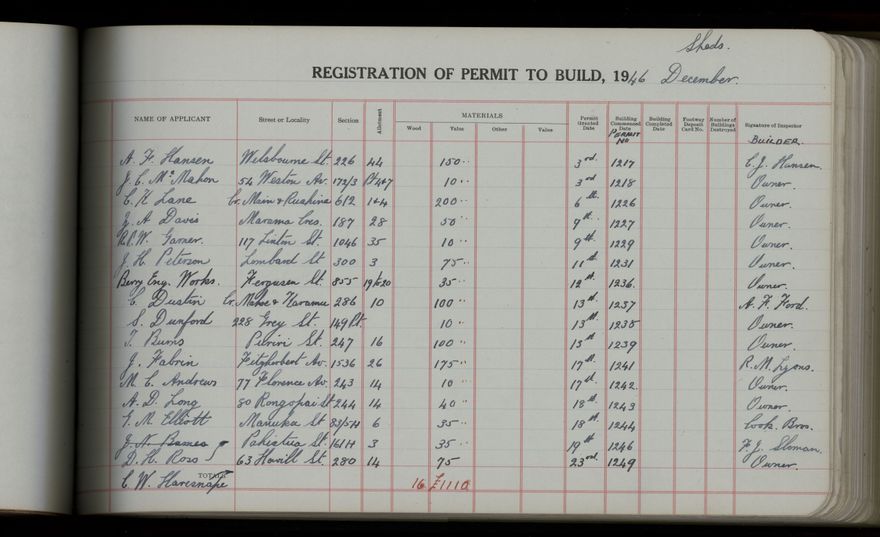 Sheds.
REGISTRATION OF PERMIT TO BUILD, 1946 December.
NAME OF APPLICANT Street or Locality Section Allotment MATERIALS Wood Value Other Value Permit Granted Date Building Commenced Date PERMIT NO Building Completed Date Footway Deposit Card No. Number of Buildings Destroyed Signature of Inspector BUILDER.
A. F. Hansen Welsbourne St. 226 44 150 .. 3rd. 1217 C. J. Hansen.
J. C. McMahon 54 Weston Av. 172/3 Pt 4+7 10 .. 3rd 1218 Owner.
C. K. Lane Cr. Main & Ruahine 612 1+4 200 .. 6th. 1226 Owner.
J. A Davis Marama Cres. 187 28 50 .. 9th. 1227 Owner.
R.P.W. Garner. 117 Linton St. 1046 35 10 .. 9th. 1229 Owner.
J. H. Peterson Lombard St 300 3 75 .. 11th 1231 Owner.
Berry Eng. Works. Ferguson St. 855 19+20 35 .. 12th. 1236. Owner.
C. Dustin Cr. Mahoe & Karamu 286 10 100 .. 13th. 1237 A. F. Ford.
S. Dunford 228 Grey St. 149 Pt. 10 .. 13th. 1238 Owner.
T. Burns Puriri St. 247 16 100 .. 13th 1239 Owner.
J. Fabrin Fitzherbert Av. 1536 26 175 .. 17th. 1241 R. M. Lyons.
M. C. Andrews 77 Florence Av. 243 14 10 .. 17th. 1242. Owner.
A. D. Long 80 Rongopai St 244 14 40 .. 18th. 1243 Owner.
G. M. Elliott Manuka St 6 35 .. 18th. 1244 Cook Bros.
J. N. Barnes Pahiatua St. 161H 3 35 .. 19th 1246 F. J. Sloman.
D. H. Ross 63 Havill St. 280 14 75 23rd. 1249 Owner.
TOTALS
C. W. Haresnape 16 £1110